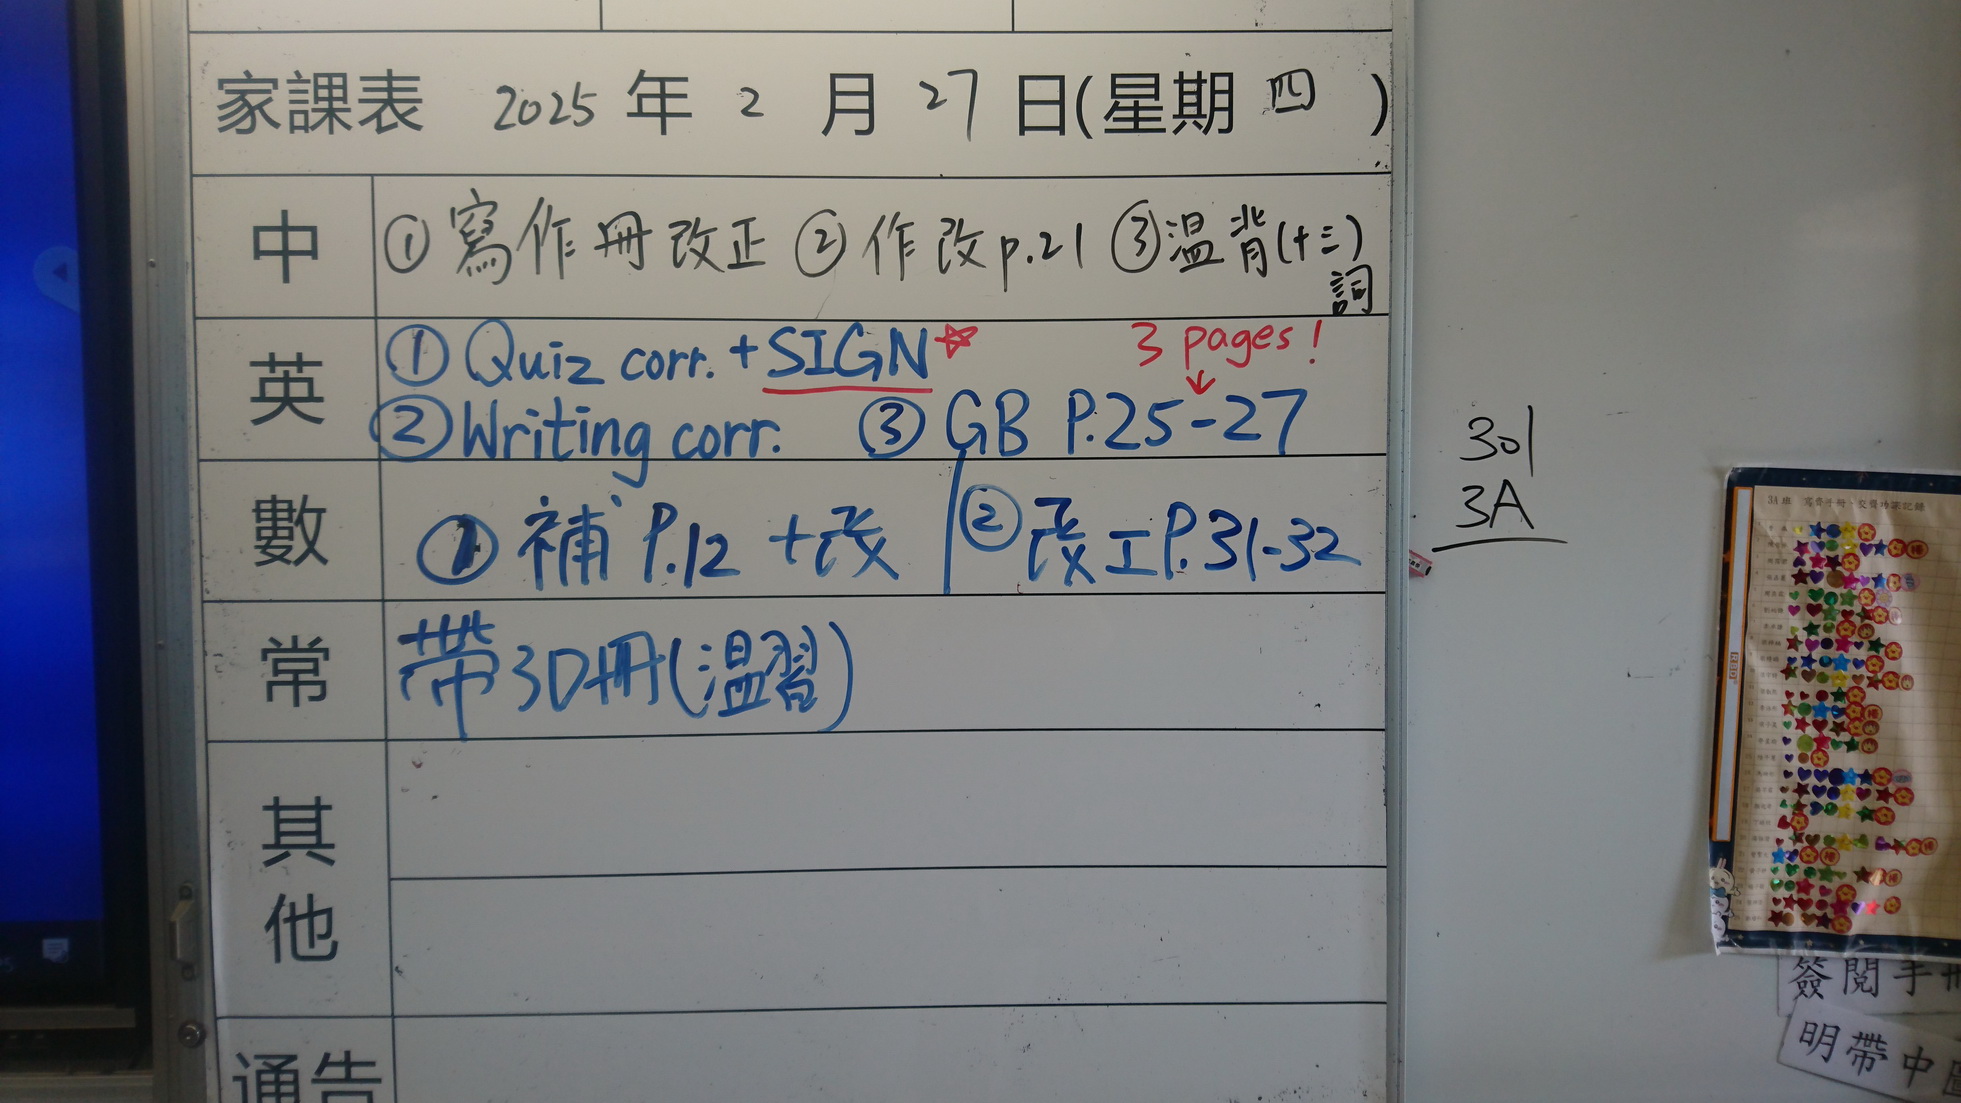 家課表 2025 年 2 月 27 日(星期 四 )
中 ① 寫作冊改正 ② 作改p.21 ③温背(十三)
詞
英 ① Quiz corr. + SIGN 3 pages!
② Writing corr. ③ GB P.25-27
數 ① 補 P.12 +改 ② 改工P.31-32
常 帶3D冊(溫習)
其他
通告
301
3A
簽閱手冊
明帶中